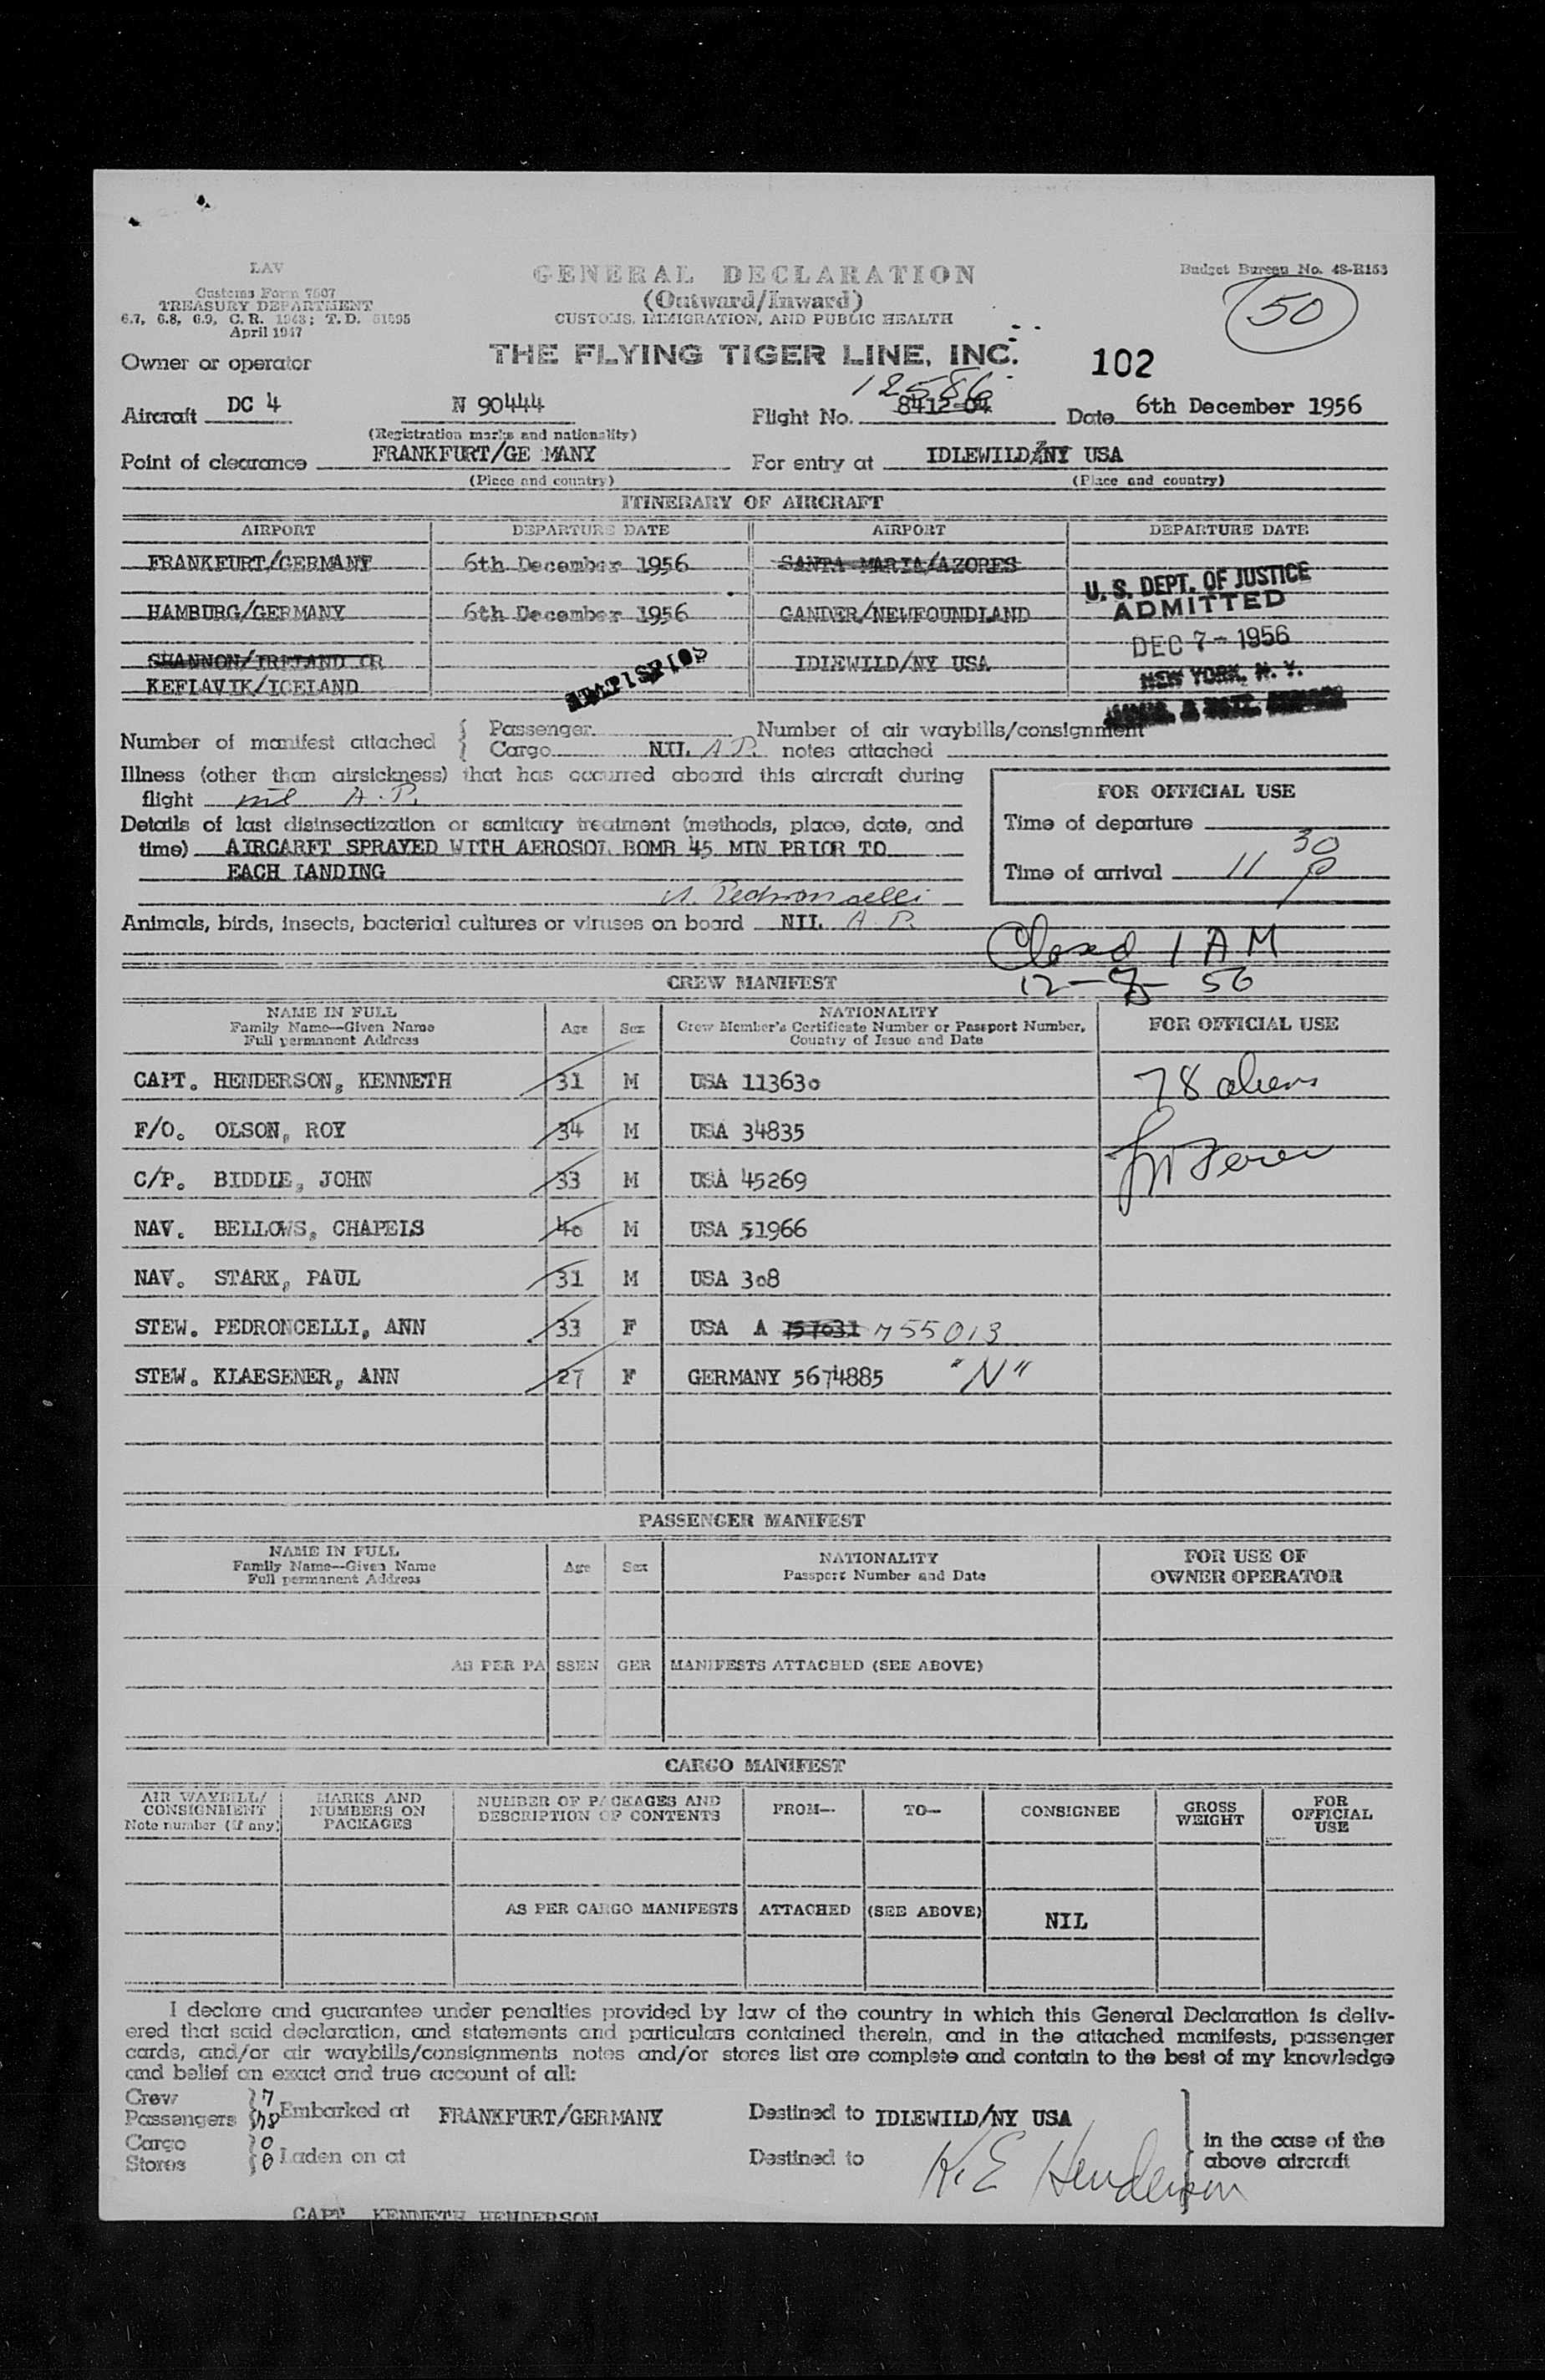 LAV
Customs Form 7507
TREASURY DEPARTMENT
6.7, 6.8, 6.9, C. R. 1943; T. D. 51695
April 1947
GENERAL DECLARATION
(Outward/Inward)
CUSTOMS, IMMIGRATION, AND PUBLIC HEALTH
Budget Bureau No. 48-R153
50
Owner or operator THE FLYING TIGER LINE, INC. 102
12586
Aircraft DC 4 N 90444 Flight No. 8412-04 Date 6th December 1956
(Registration marks and nationality)
Point of clearance FRANKFURT/GE MANY For entry at IDLEWILD/NY USA
(Place and country) (Place and country)
ITINERARY OF AIRCRAFT
AIRPORT DEPARTURE DATE AIRPORT DEPARTURE DATE
FRANKFURT/GERMANY 6th December 1956 SANTA MARIA/AZORES
U. S. DEPT. OF JUSTICE
ADMITTED
HAMBURG/GERMANY 6th December 1956 GANDER/NEWFOUNDLAND
DEC 7 - 1956
SHANNON/IRELAND IR IDLEWILD/NY USA
NEW YORK, N. Y.
KEFLAVIK/ICELAND
Number of manifest attached { Passenger Number of air waybills/consignment
Cargo NIL A P. notes attached
Illness (other than airsickness) that has occurred aboard this aircraft during
flight nil A. P.
FOR OFFICIAL USE
Details of last disinsectization or sanitary treatment (methods, place, date, and
time) AIRCARFT SPRAYED WITH AEROSOL BOMB 45 MIN PRIOR TO
EACH LANDING
Time of departure
Time of arrival 11 30 P
A. Pedroncelli
Animals, birds, insects, bacterial cultures or viruses on board NIL A P.
Closed 1 AM
12-8-56
CREW MANIFEST
NAME IN FULL
Family Name—Given Name
Full permanent Address
Age Sex
NATIONALITY
Crew Member's Certificate Number or Passport Number,
Country of Issue and Date
FOR OFFICIAL USE
CAPT. HENDERSON, KENNETH 31 M USA 113630 78 aliens
F/O. OLSON, ROY 34 M USA 34835
C/P. BIDDLE, JOHN 33 M USA 45269
NAV. BELLOWS, CHAPELS 40 M USA 51966
NAV. STARK, PAUL 31 M USA 308
STEW. PEDRONCELLI, ANN 33 F USA A 755013
STEW. KLAESENER, ANN 27 F GERMANY 5674885 "N"
PASSENGER MANIFEST
NAME IN FULL
Family Name—Given Name
Full permanent Address
Age Sex
NATIONALITY
Passport Number and Date
FOR USE OF
OWNER OPERATOR
AS PER PA SSEN GER MANIFESTS ATTACHED (SEE ABOVE)
CARGO MANIFEST
AIR WAYBILL/
CONSIGNMENT
Note number (if any)
MARKS AND
NUMBERS ON
PACKAGES
NUMBER OF PACKAGES AND
DESCRIPTION OF CONTENTS
FROM— TO— CONSIGNEE
GROSS
WEIGHT
FOR
OFFICIAL
USE
AS PER CARGO MANIFESTS ATTACHED (SEE ABOVE) NIL
I declare and guarantee under penalties provided by law of the country in which this General Declaration is deliv-
ered that said declaration, and statements and particulars contained therein, and in the attached manifests, passenger
cards, and/or air waybills/consignments notes and/or stores list are complete and contain to the best of my knowledge
and belief an exact and true account of all:
Crew 7
Passengers 78 Embarked at FRANKFURT/GERMANY Destined to IDLEWILD/NY USA
Cargo 0
Stores 0 Laden on at Destined to
in the case of the
above aircraft
K. E Henderson
CAPT KENNETH HENDERSON